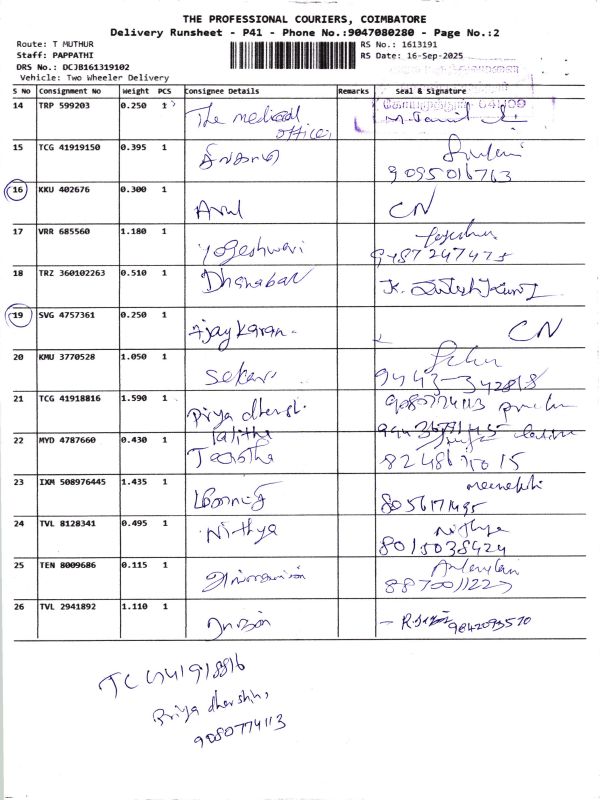 THE PROFESSIONAL COURIERS, COIMBATORE
Delivery Runsheet - P41 - Phone No.:9047080280 - Page No.:2
Route: T MUTHUR
Staff: PAPPATHI
DRS No.: DCJB161319102
Vehicle: Two Wheeler Delivery
RS No.: 1613191
RS Date: 16-Sep-2025
S No Consignment No Weight PCS Consignee Details Remarks Seal & Signature
14 TRP 599203 0.250 1 The medical officer
15 TCG 41919150 0.395 1
9095016763
16 KKU 402676 0.300 1 Arul CN
17 VRR 685560 1.180 1 Yogeshwari
9787247475
18 TRZ 360102263 0.510 1 Dhanabal
19 SVG 4757361 0.250 1 Ajay Karan. CN
20 KMU 3770528 1.050 1 Sekar
9443-342818
21 TCG 41918816 1.590 1 Priya dharshi.
9080774113
22 MYD 4787660 0.430 1 Lalitha
23 IXM 508976445 1.435 1 meenakshi
8056171495
24 TVL 8128341 0.495 1 Nithya Nithya
8015038424
25 TEN 8009686 0.115 1
8870011227
26 TVL 2941892 1.110 1
9842093570
TCG 41918816
Priya dharshini,
9080774113